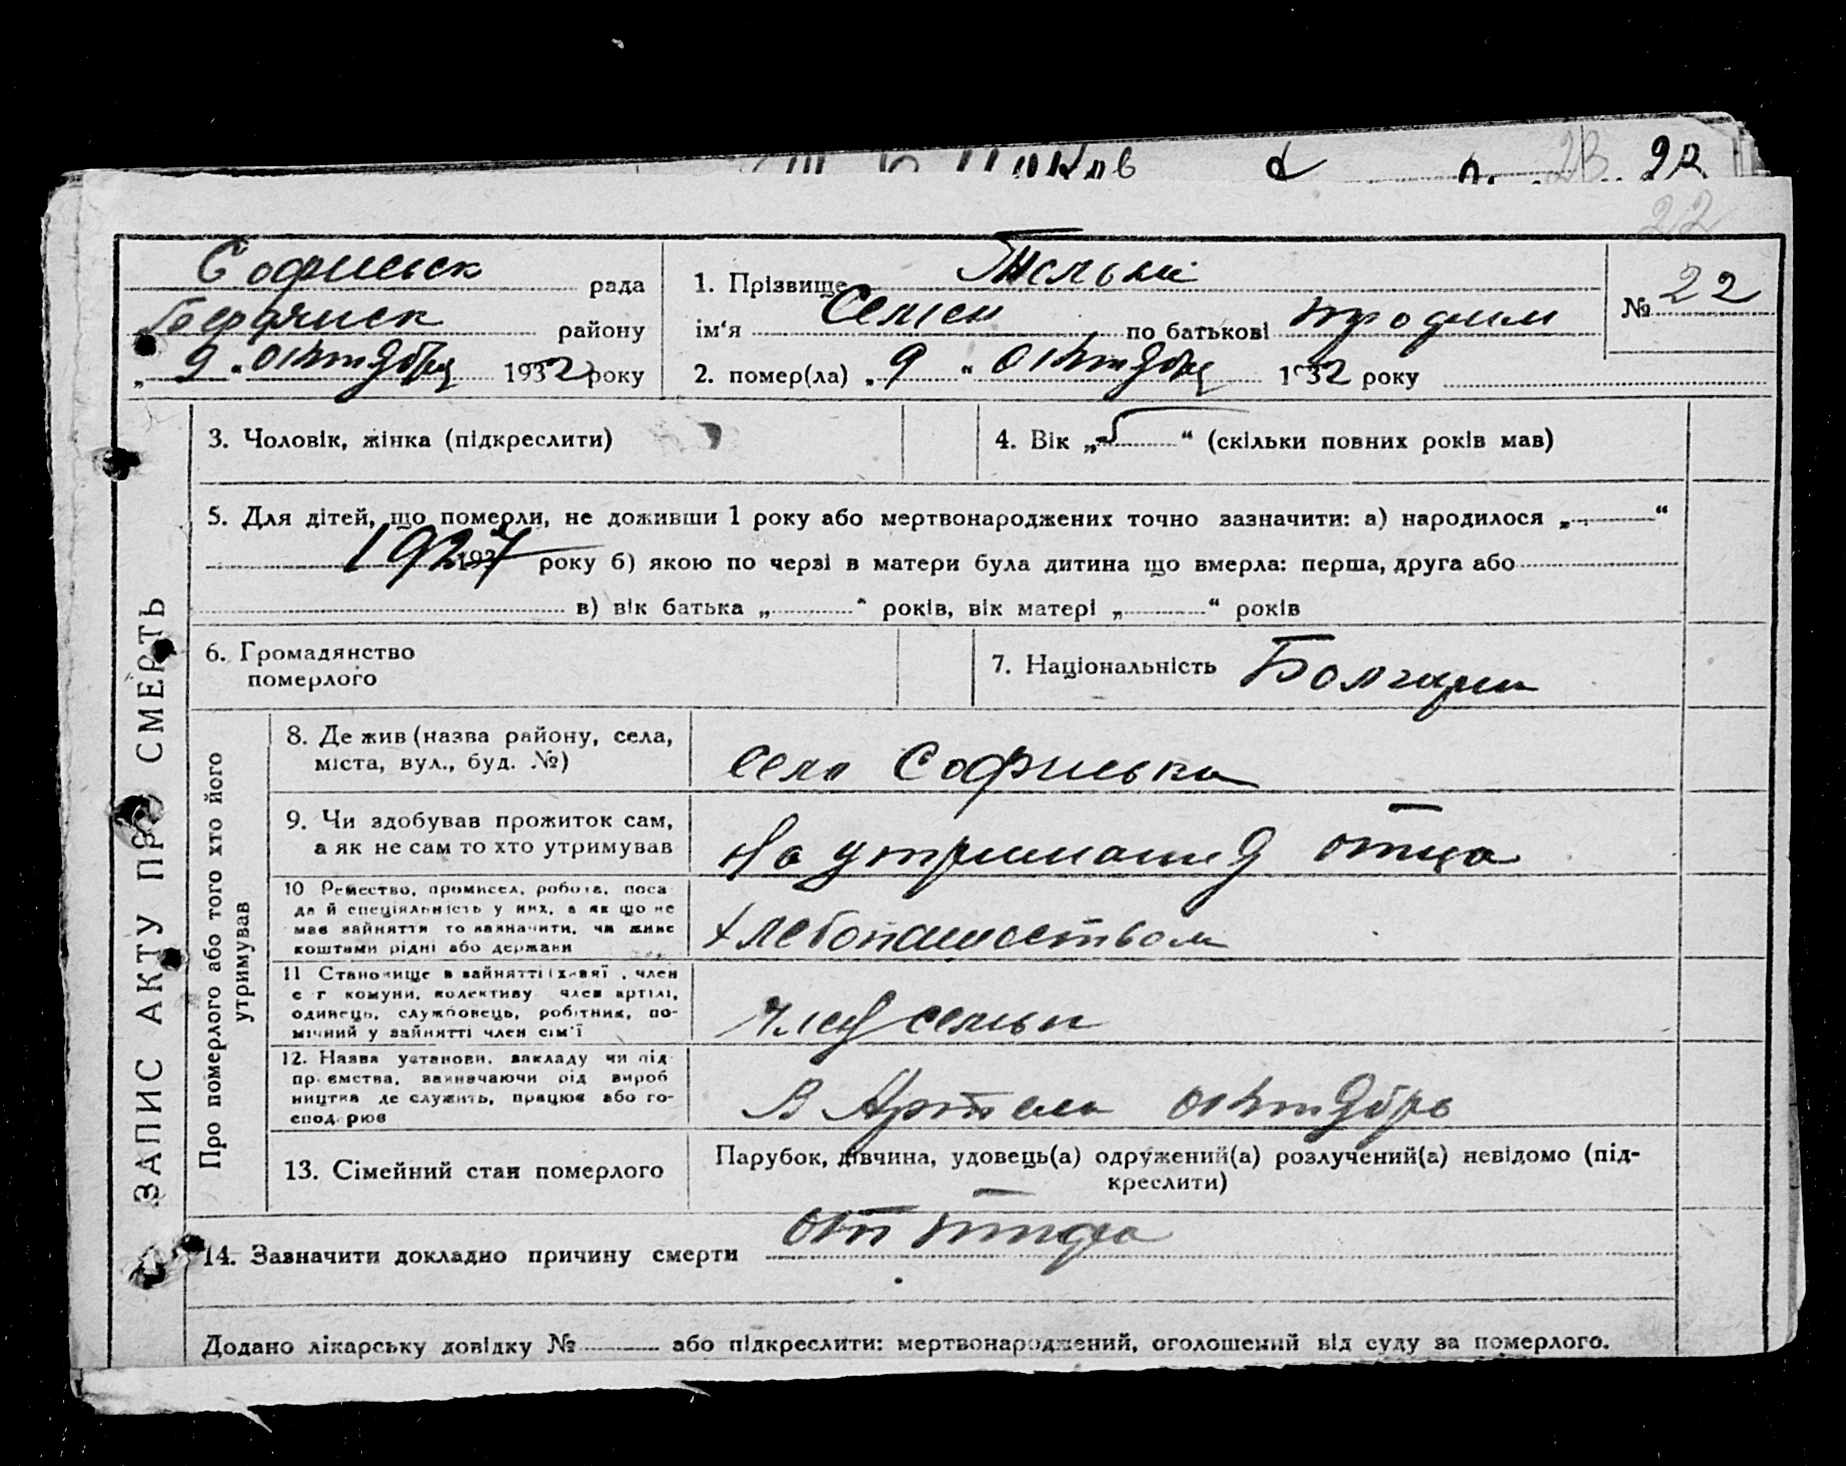 22
Софиевск рада
Бердянск району
„ 9 “ октября 1932 року
1. Прізвище
ім‘я Семен по батькові трофим
2. помер(ла) „ 9 “ октября 1932 року
№ 22
3. Чоловік, жінка (підкреслити)
4. Вік „ 5 “ (скільки повних років мав)
5. Для дітей, що померли, не доживши 1 року або мертвонароджених точно зазначити: а) народилося „ “
1927 року б) якою по черзі в матери була дитина що вмерла: перша, друга або
в) вік батька „ “ років, вік матері „ “ років
6. Громадянство
померлого
7. Національність Болгарин
ЗАПИС АКТУ ПРО СМЕРТЬ
Про померлого або того хто його
утримував
8. Де жив (назва району, села,
міста, вул., буд. №)
село Софиевка
9. Чи здобував прожиток сам,
а як не сам то хто утримував
На утримания отца
10 Ремество, промисел, робота, поса
да й спеціяльність у них, а як що не
має зайняття то зазначити, чи живе
коштами рідні або держави
хлебопашеством
11 Становище в зайнятті , член
с г комуни, колективу член артілі,
одинець, службовець, робітник, по-
мічний у зайнятті член сім'ї
член семьи
12. Назва установи, закладу чи під
приємства, зазначаючи рід вироб
ництва де служить, працює або го-
сподарює
В Артели октябрь
13. Сімейний стан померлого
Парубок, дівчина, удовець(а) одружений(а) розлучений(а) невідомо (під-
креслити)
14. Зазначити докладно причину смерти от тифа
Додано лікарську довідку № або підкреслити: мертвонароджений, оголошений від суду за померлого.